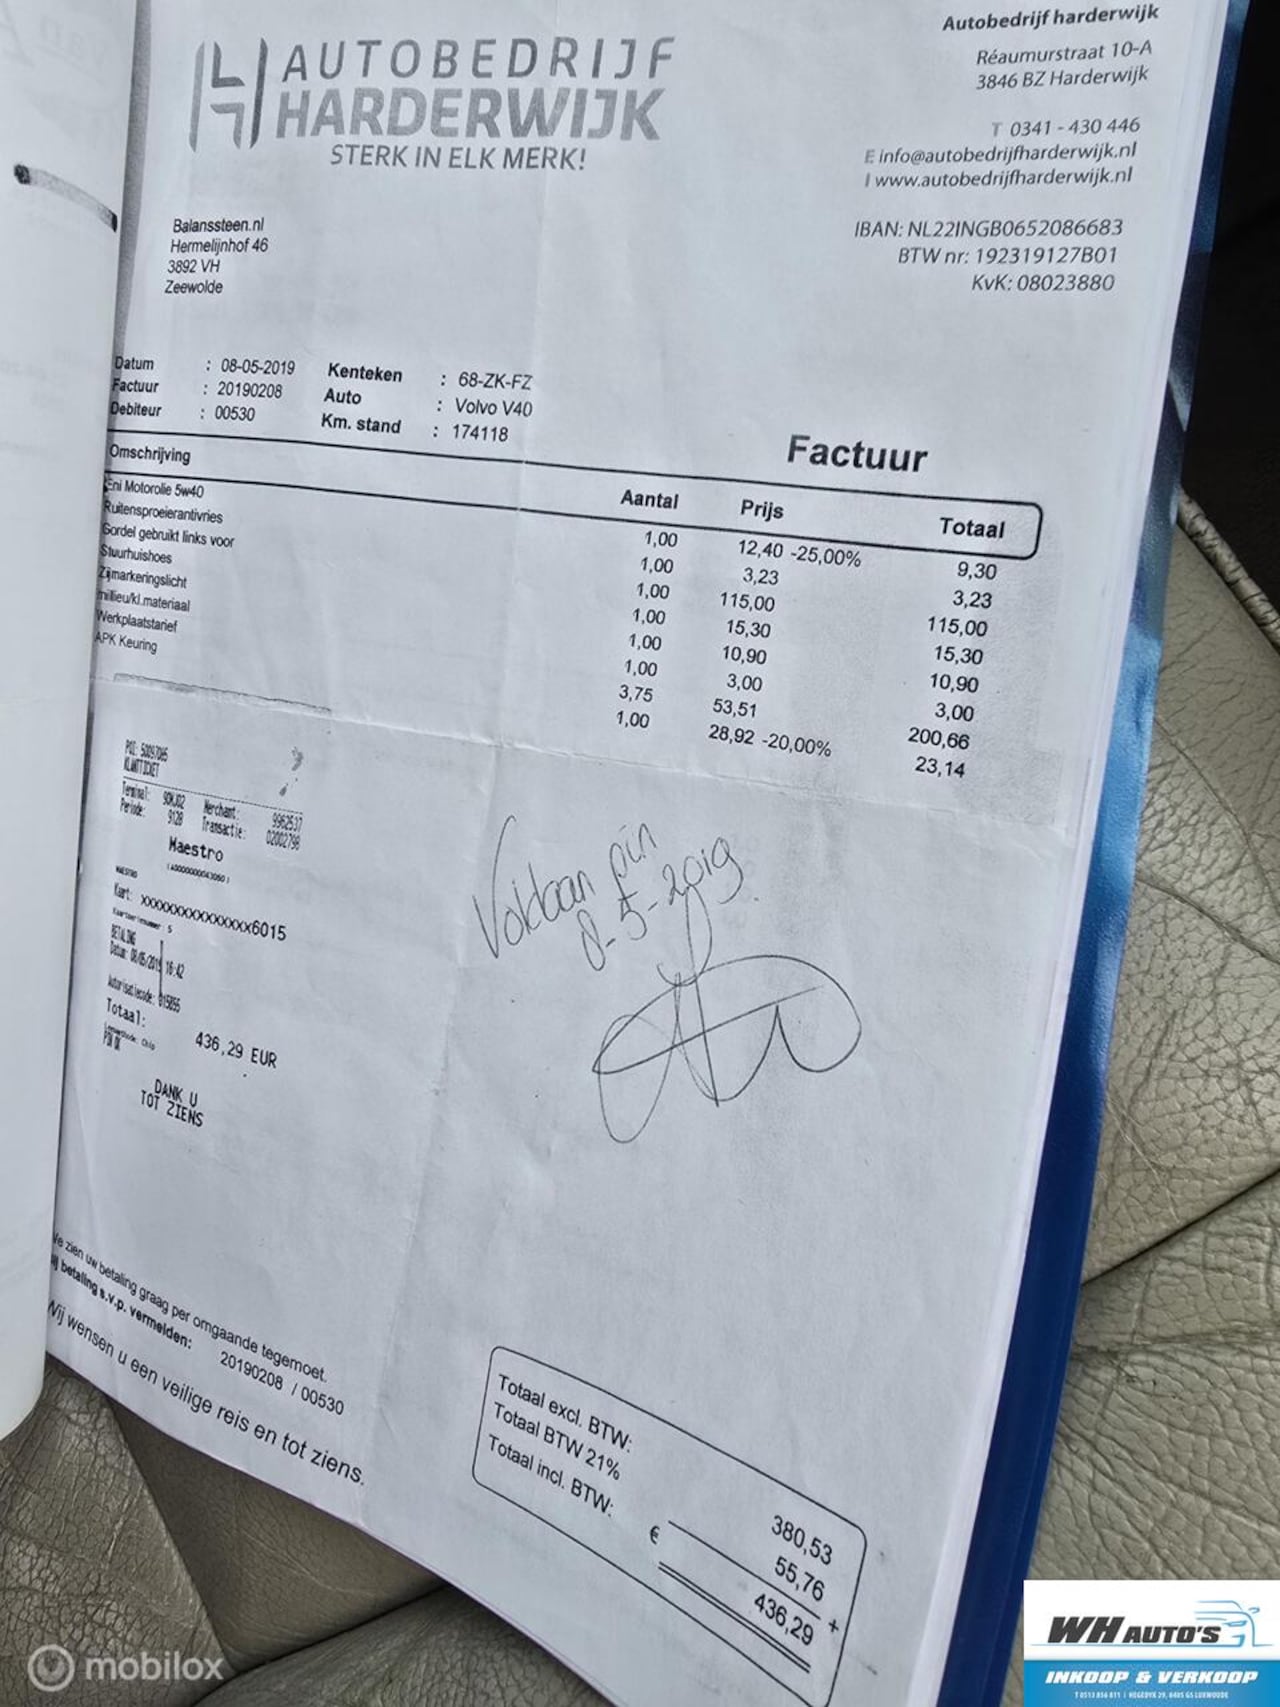 AUTOBEDRIJF
HARDERWIJK
STERK IN ELK MERK!
Autobedrijf harderwijk
Réaumurstraat 10-A
3846 BZ Harderwijk
T 0341 - 430 446
E info@autobedrijfharderwijk.nl
I www.autobedrijfharderwijk.nl
IBAN: NL22INGB0652086683
BTW nr: 192319127B01
KvK: 08023880
Balanssteen.nl
Hermelijnhof 46
3892 VH
Zeewolde
Datum : 08-05-2019 Kenteken : 68-ZK-FZ
Factuur : 20190208 Auto : Volvo V40
Debiteur : 00530 Km. stand : 174118
Factuur
Omschrijving Aantal Prijs Totaal
Eni Motorolie 5w40 1,00 12,40 -25,00% 9,30
Ruitensproeierantivries 1,00 3,23 3,23
Gordel gebruikt links voor 1,00 115,00 115,00
Stuurhuishoes 1,00 15,30 15,30
Zijmarkeringslicht 1,00 10,90 10,90
millieu/kl.materiaal 1,00 3,00 3,00
Werkplaatstarief 3,75 53,51 200,66
APK Keuring 1,00 28,92 -20,00% 23,14
POI: 50097085
KLANTTICKET
Terminal: 90KJ02 Merchant: 9962537
Periode: 9128 Transactie: 02002798
Maestro
MAESTRO
Kaart: xxxxxxxxxxxxxxx6015
BETALING
Datum: 08/05/2019 16:42
Autorisatiecode: 015855
Totaal: 436,29 EUR
Leesmethode: Chip
PIN OK
DANK U
TOT ZIENS
Voldaan pin
8-5-2019
We zien uw betaling graag per omgaande tegemoet.
Bij betaling s.v.p. vermelden: 20190208 / 00530
Wij wensen u een veilige reis en tot ziens.
Totaal excl. BTW: 380,53
Totaal BTW 21% 55,76 +
Totaal incl. BTW: € 436,29
mobilox
WH AUTO'S
INKOOP & VERKOOP
T 0513 856 811 | HEGEDYK 29, 8405 GS LUXWOUDE